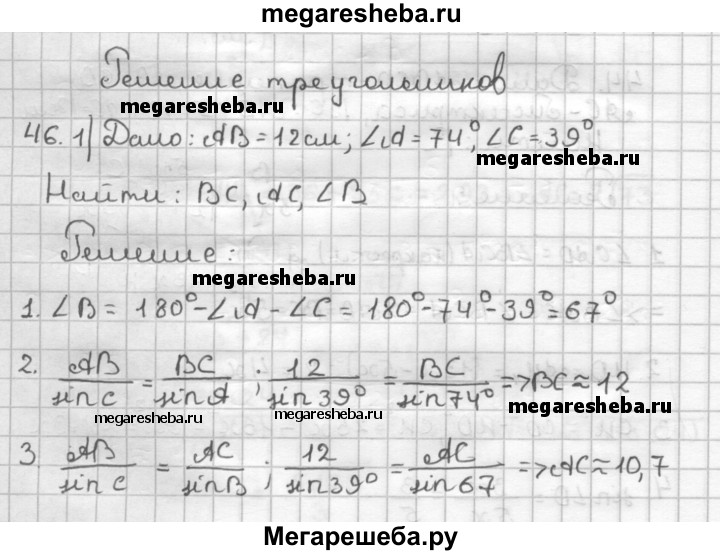 megaresheba.ru
Решение треугольников
megaresheba.ru
46. 1) Дано: AB = 12 см; ∠A = 74°, ∠C = 39°
megaresheba.ru
Найти: BC, AC, ∠B
Решение:
megaresheba.ru
1. ∠B = 180° - ∠A - ∠C = 180° - 74° - 39° = 67°
2. AB/sin C = BC/sin A ; 12/sin 39° = BC/sin 74° => BC ≈ 12
megaresheba.ru megaresheba.ru megaresheba.ru
3. AB/sin C = AC/sin B ; 12/sin 39° = AC/sin 67 => AC ≈ 10,7
Мегарешеба.ру